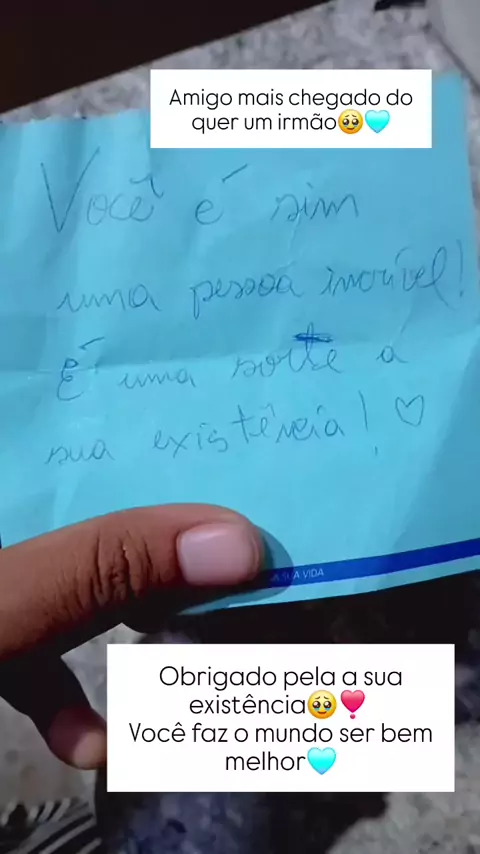 Amigo mais chegado do
quer um irmão🥹🩵
Você é sim
uma pessoa incrível!
É uma sorte a
sua existência! ♡
A VIDA
Obrigado pela a sua
existência🥹❣️
Você faz o mundo ser bem
melhor🩵